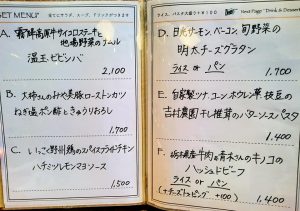 SET MENU
全てにサラダ、スープ、ドリンクがつきます
A. 霧峰高原牛サイコロステーキと
地場野菜のナムル
温玉ビビンバ
2,100
B. 大姉さんの朴や美豚ローストンカツ
ねぎ塩ポン酢ときゅうりおろし
1,700
C. いっこく野州鶏のスパイスフライドチキン
ハチミツレモンマヨソース
1,500
ライス、パスタ大盛り+¥100
Next Page
Drink & Dessert
D. 日光サーモン、ベーコン、旬野菜の
明太チーズグラタン
ライス or パン
1,700
E. 自家製ツナ、コーン、ホウレン草、枝豆の
吉村農園干し椎茸のバターソースパスタ
1,400
F. 栃木県産牛肉&青木さんのキノコの
ハッシュドビーフ
ライス or パン
(+チーズトッピング +100)
1,400